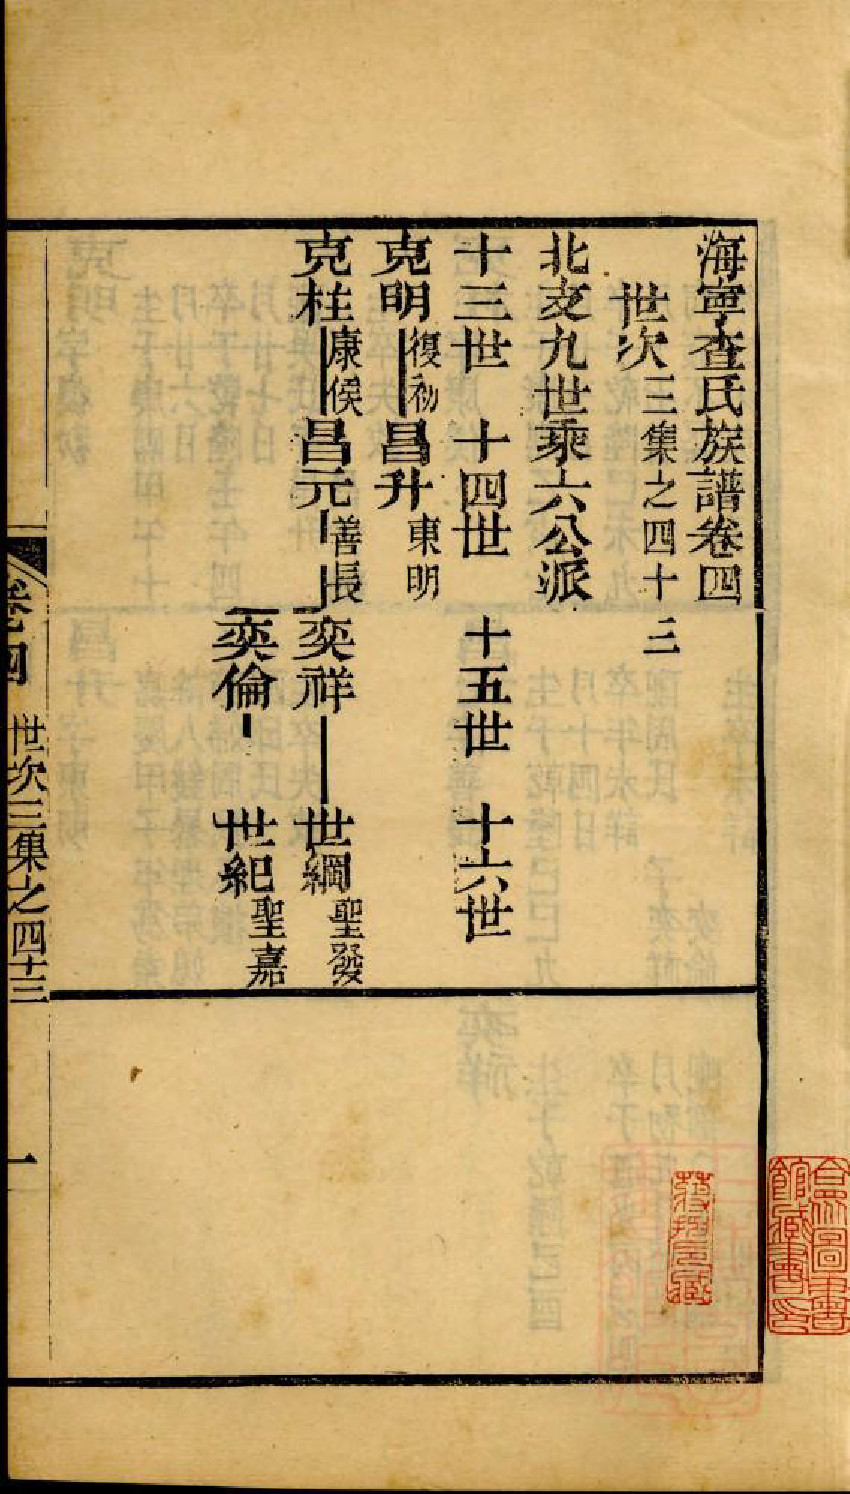 海寧查氏族譜卷四
世次三集之四十三
北支九世乘六公派
十三世 十四世 十五世 十六世
克明 復初 昌升 東明
克柱 康侯 昌元 善長 奕祥 世綱 聖發
奕倫 世紀 聖嘉
卷四 世次三集之四十三 一
合眾圖書館藏書印